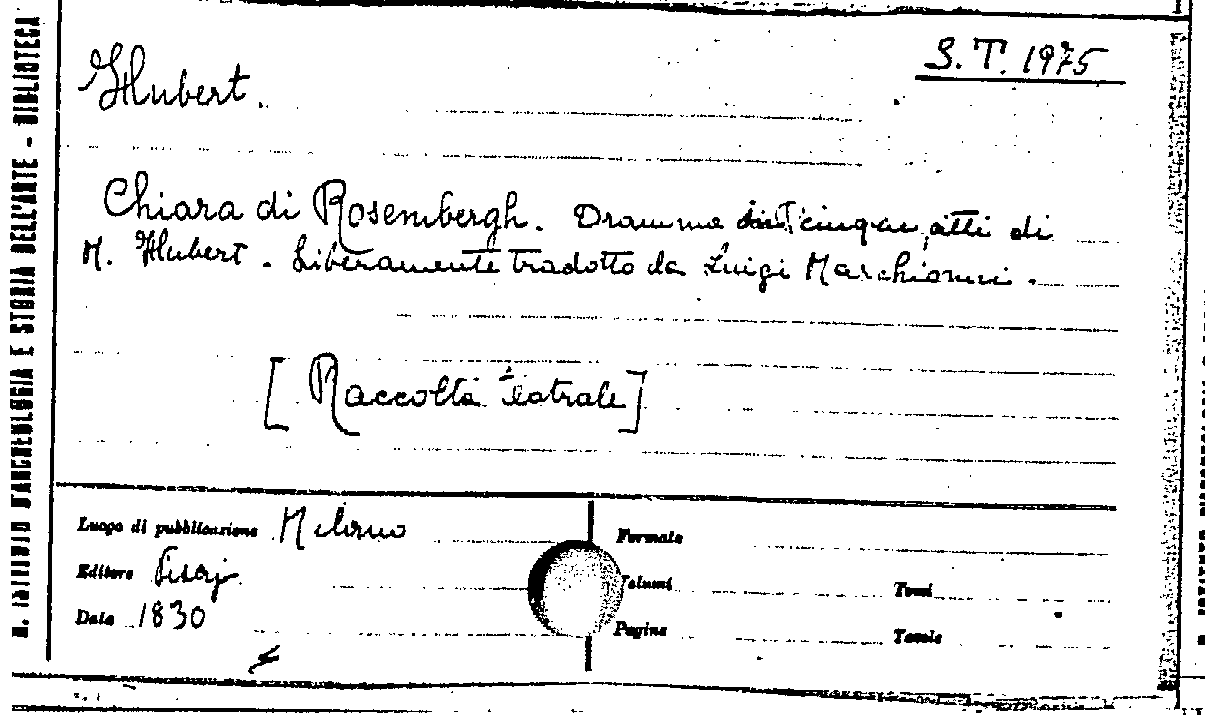 S.T. 1975
Hubert.
Chiara di Rosembergh. Dramma in cinque atti di
M. Hubert. Liberamente tradotto da Luigi Marchionni.
[Raccolta teatrale]
Luogo di pubblicazione Milano
Editore
Data 1830
Formato
Volumi Tomi
Pagine Tavole
R. ISTITUTO D'ARCHEOLOGIA E STORIA DELL'ARTE - BIBLIOTECA